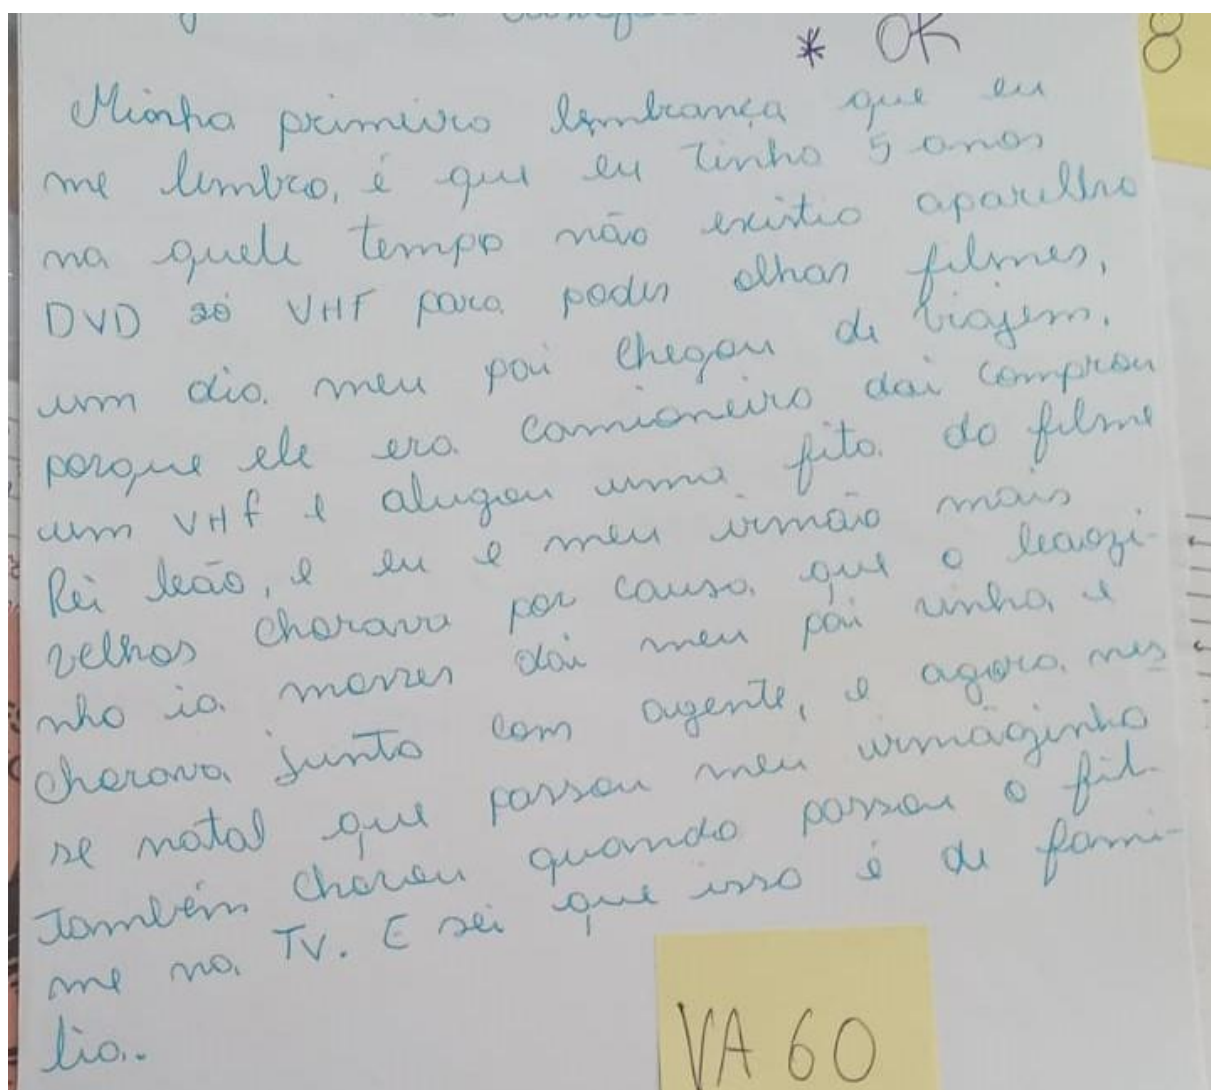 * OK
8
Minha primeira lembrança que eu
me lembro, é que eu tinha 5 anos
na quele tempo não existia aparelho
DVD só VHF para poder olhar filmes,
um dia meu pai chegou de viajem,
porque ele era camioneiro dai comprou
um VHf e alugou uma fita do filme
Rei leão, e eu e meu irmão mais
velhos chorava por causa que o leaozi-
nho ia morrer dai meu pai vinha e
chorava junto com agente, e agora nes
se natal que passou meu irmãozinho
também chorou quando passou o fil-
me na TV. E sei que isso é de fami-
lia..
VA 60